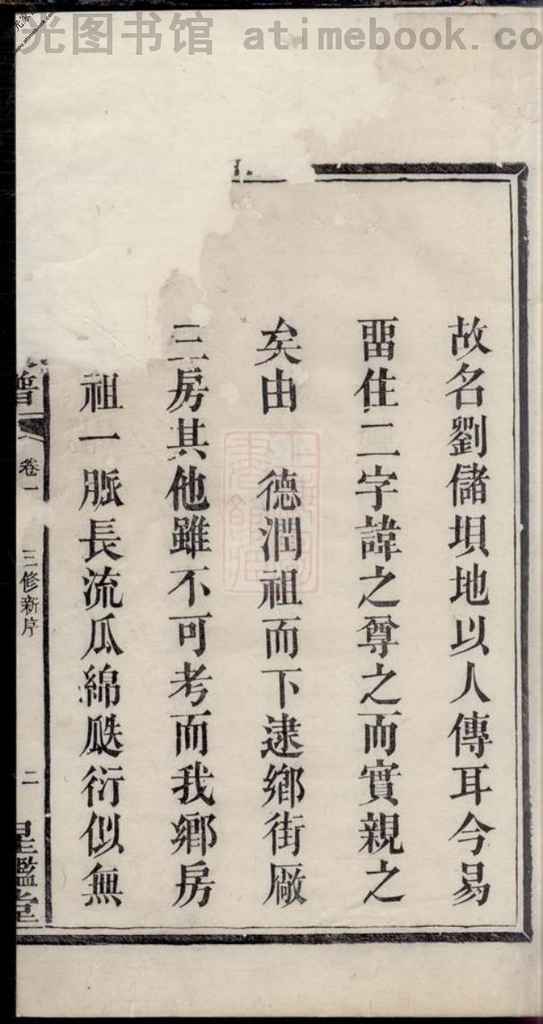 光图书馆 atimebook.co
故名劉儲垻地以人傳耳今易
畱住二字諱之尊之而實親之
矣由 德潤祖而下逮鄉街厰
三房其他雖不可考而我鄉房
祖一脈長流瓜綿瓞衍似無
譜 卷一 三修新序 二 星鑑堂